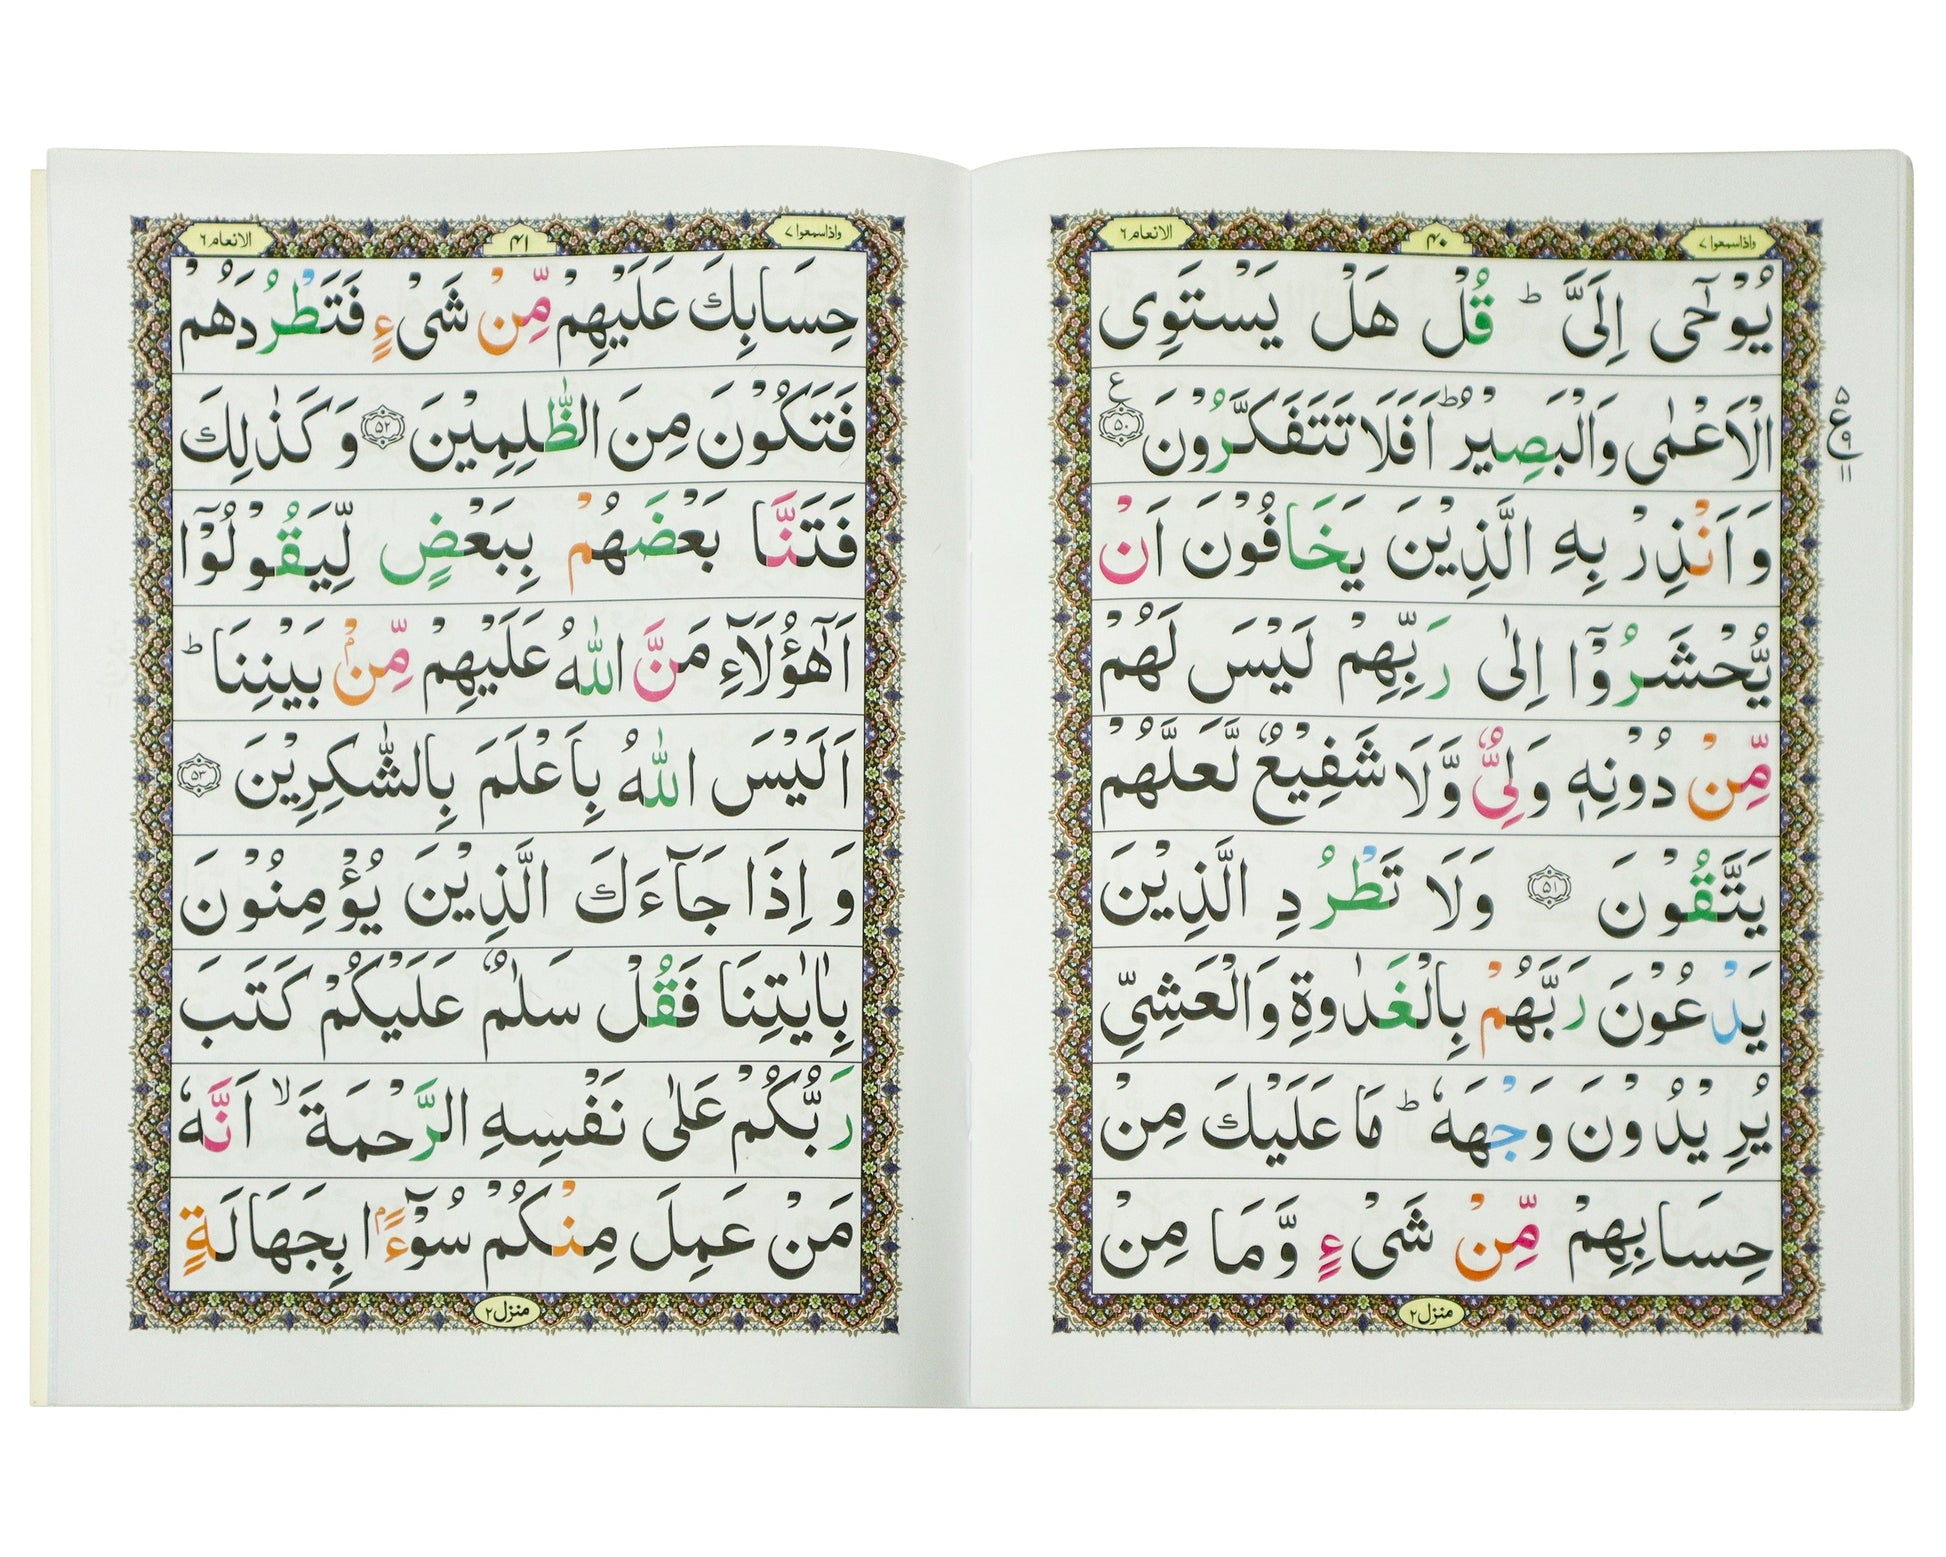 واذاسمعوا ٧
٤٠
الانعام ٦
يُوْحٰۤى اِلَىَّ ؕ قُلْ هَلْ يَسْتَوِى
الْاَعْمٰى وَالْبَصِيْرُ ؕ اَفَلَا تَتَفَكَّرُوْنَ ۝٥٠ ع
٥
ع ٩
١١
وَ اَنْذِرْ بِهِ الَّذِيْنَ يَخَافُوْنَ اَنْ
يُّحْشَرُوْۤا اِلٰى رَبِّهِمْ لَيْسَ لَهُمْ
مِّنْ دُوْنِهٖ وَلِىٌّ وَّلَا شَفِيْعٌ لَّعَلَّهُمْ
يَتَّقُوْنَ ۝٥١ وَلَا تَطْرُدِ الَّذِيْنَ
يَدْعُوْنَ رَبَّهُمْ بِالْغَدٰوةِ وَالْعَشِىِّ
يُرِيْدُوْنَ وَجْهَهٗ ؕ مَا عَلَيْكَ مِنْ
حِسَابِهِمْ مِّنْ شَىْءٍ وَّمَا مِنْ
منزل ٢
واذاسمعوا ٧
٤١
الانعام ٦
حِسَابِكَ عَلَيْهِمْ مِّنْ شَىْءٍ فَتَطْرُدَهُمْ
فَتَكُوْنَ مِنَ الظّٰلِمِيْنَ ۝٥٢ وَكَذٰلِكَ
فَتَنَّا بَعْضَهُمْ بِبَعْضٍ لِّيَقُوْلُوْۤا
اَهٰۤؤُلَآءِ مَنَّ اللّٰهُ عَلَيْهِمْ مِّنْۢ بَيْنِنَا ؕ
اَلَيْسَ اللّٰهُ بِاَعْلَمَ بِالشّٰكِرِيْنَ ۝٥٣
وَ اِذَا جَآءَكَ الَّذِيْنَ يُؤْمِنُوْنَ
بِاٰيٰتِنَا فَقُلْ سَلٰمٌ عَلَيْكُمْ كَتَبَ
رَبُّكُمْ عَلٰى نَفْسِهِ الرَّحْمَةَ ۙ اَنَّهٗ
مَنْ عَمِلَ مِنْكُمْ سُوْٓءًۢا بِجَهَالَةٍ
منزل ٢